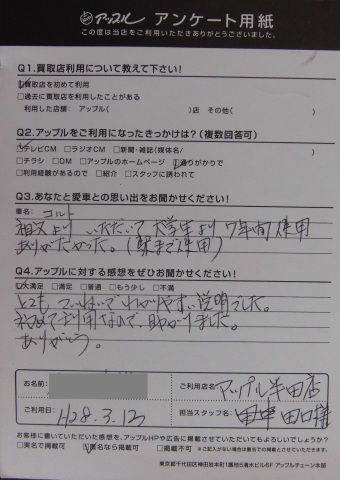 アップル アンケート用紙
この度は当店をご利用いただきありがとうございました。
Q1.買取店利用について教えて下さい!
☑買取店を初めて利用
□過去に買取店を利用したことがある
利用した店舗: アップル( )店 その他( )
Q2.アップルをご利用になったきっかけは?(複数回答可)
☑テレビCM □ラジオCM □新聞・雑誌(媒体名/ )
□チラシ □DM □アップルのホームページ ☑通りがかりで
□利用経験があるので □紹介 □スタッフに誘われて
Q3.あなたと愛車との思い出をお聞かせください!
車名: コルト
祖父より いただいて 大学生より 7年間 使用
ありがたかった。(駅まで使用)
Q4.アップルに対する感想をぜひお聞かせください!
☑大満足 □満足 □普通 □もう少し □不満
とても ていねいで わかりやすい 説明でした。
初めて 利用なので、助かりました。
ありがとう。
お名前:
ご利用店名: アップル半田店
ご利用日: H28.3.12
担当スタッフ名: 田中 田口様
お客様に書いていただいた感想を、アップルHPや広告に掲載させていただいてもよろしいでしょうか?
□実名で掲載可 ☑匿名なら掲載可 □掲載不可 ※ご記入がない場合は匿名での掲載とさせていただきます。
東京都千代田区神田岩本町1番地5清水ビル6F アップルチェーン本部